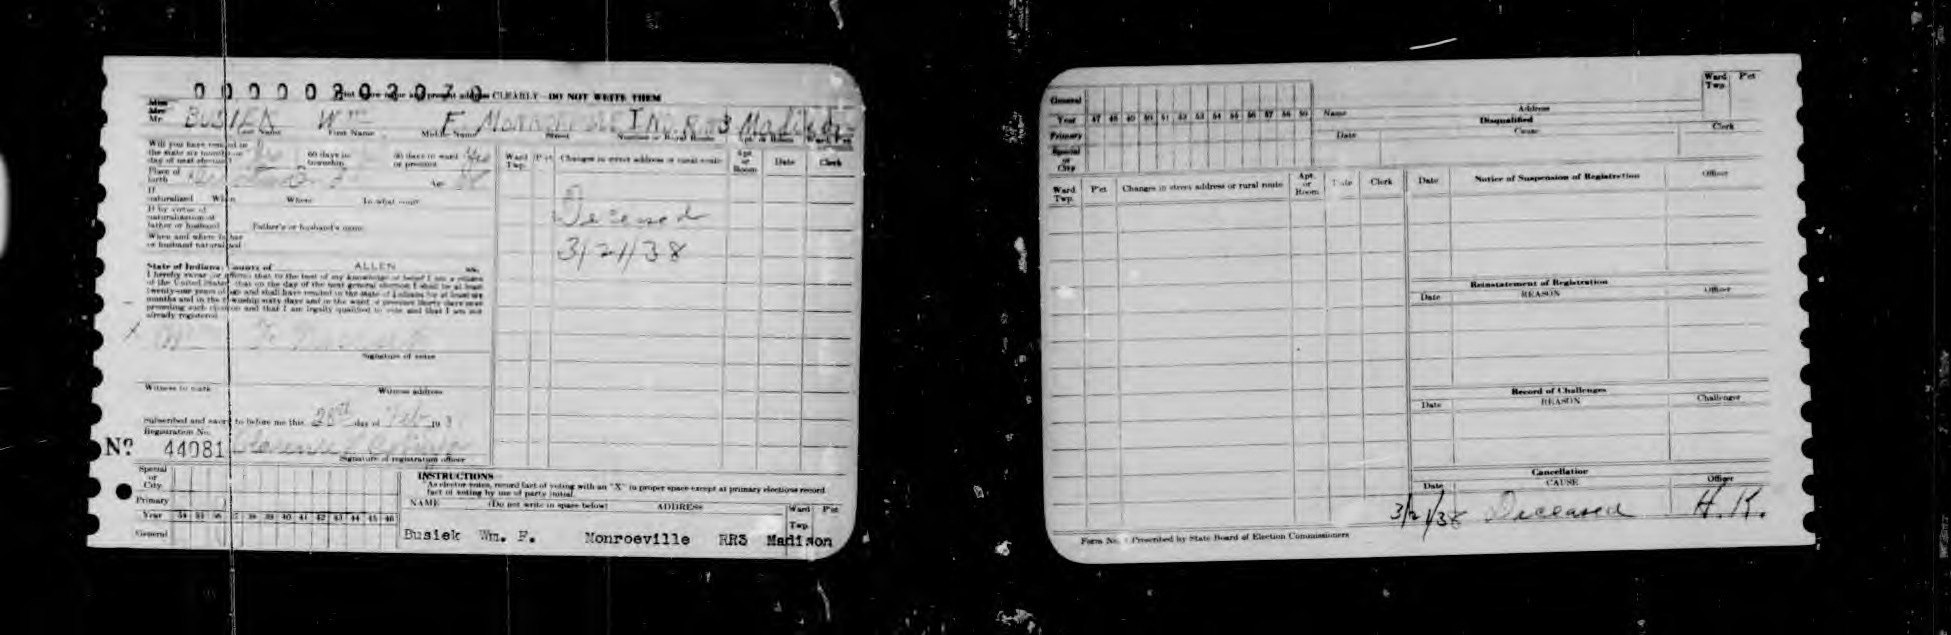 0000020 3 0 7 0
CLEARLY—DO NOT WRITE THEM
Miss
Mrs
Mr. BUSIEK Wm F MONROEVILLE IND. R R 3 Madison
Last Name First Name Middle Name Street Number or Rural Route Apt. or Room Ward Pct
Will you have resided in
the state six months on
day of next election? Yes 60 days in
township 30 days in ward
or precinct Yes
Place of
birth Age
If
naturalized When Where In what court
If by virtue of
naturalization of
father or husband Father's or husband's name
When and where father
or husband naturalized
State of Indiana, County of ALLEN ss.
I hereby swear (or affirm) that to the best of my knowledge or belief I am a citizen
of the United States, that on the day of the next general election I shall be at least
twenty-one years of age and shall have resided in the state of Indiana for at least six
months and in the township sixty days and in the ward or precinct thirty days next
preceding such election and that I am legally qualified to vote and that I am not
already registered.
X Wm F Busiek
Signature of voter
Witness to mark Witness address
Subscribed and sworn to before me this 28th day of Feb 193
Registration No.
No. 44081 Clarence
Signature of registration officer
Special
or
City
Primary
Year 34 35 36 37 38 39 40 41 42 43 44 45 46
General
Ward
Twp. P'ct Changes in street address or rural route Apt.
or
Room Date Clerk
Deceased
3/21/38
INSTRUCTIONS
As elector votes, record fact of voting with an "X" in proper space except at primary elections record
fact of voting by use of party initial.
NAME (Do not write in space below) ADDRESS Ward
Twp. P'ct
Busiek Wm. F. Monroeville RR3 Madison
General
Year 47 48 49 50 51 52 53 54 55 56 57 58 59
Primary
Special
or
City
Name Address Ward
Twp. P'ct
Disqualified
Date Cause Clerk
Ward
Twp. P'ct Changes in street address or rural route Apt.
or
Room Date Clerk
Date Notice of Suspension of Registration Officer
Reinstatement of Registration
Date REASON Officer
Record of Challenges
Date REASON Challenger
Cancellation
Date CAUSE Officer
3/21/38 Deceased H. K.
Form No. Prescribed by State Board of Election Commissioners